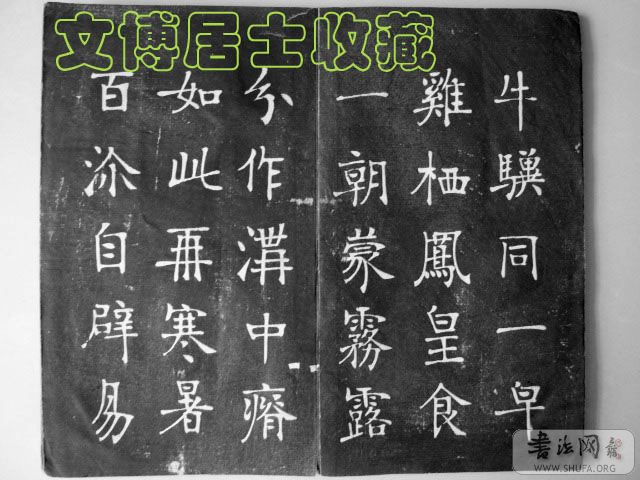 文博居士收藏
牛驥同一皁
雞栖鳳皇食
一朝蒙霧露
分作溝中瘠
如此再寒暑
百沴自辟易
書法网
WWW.SHUFA.ORG